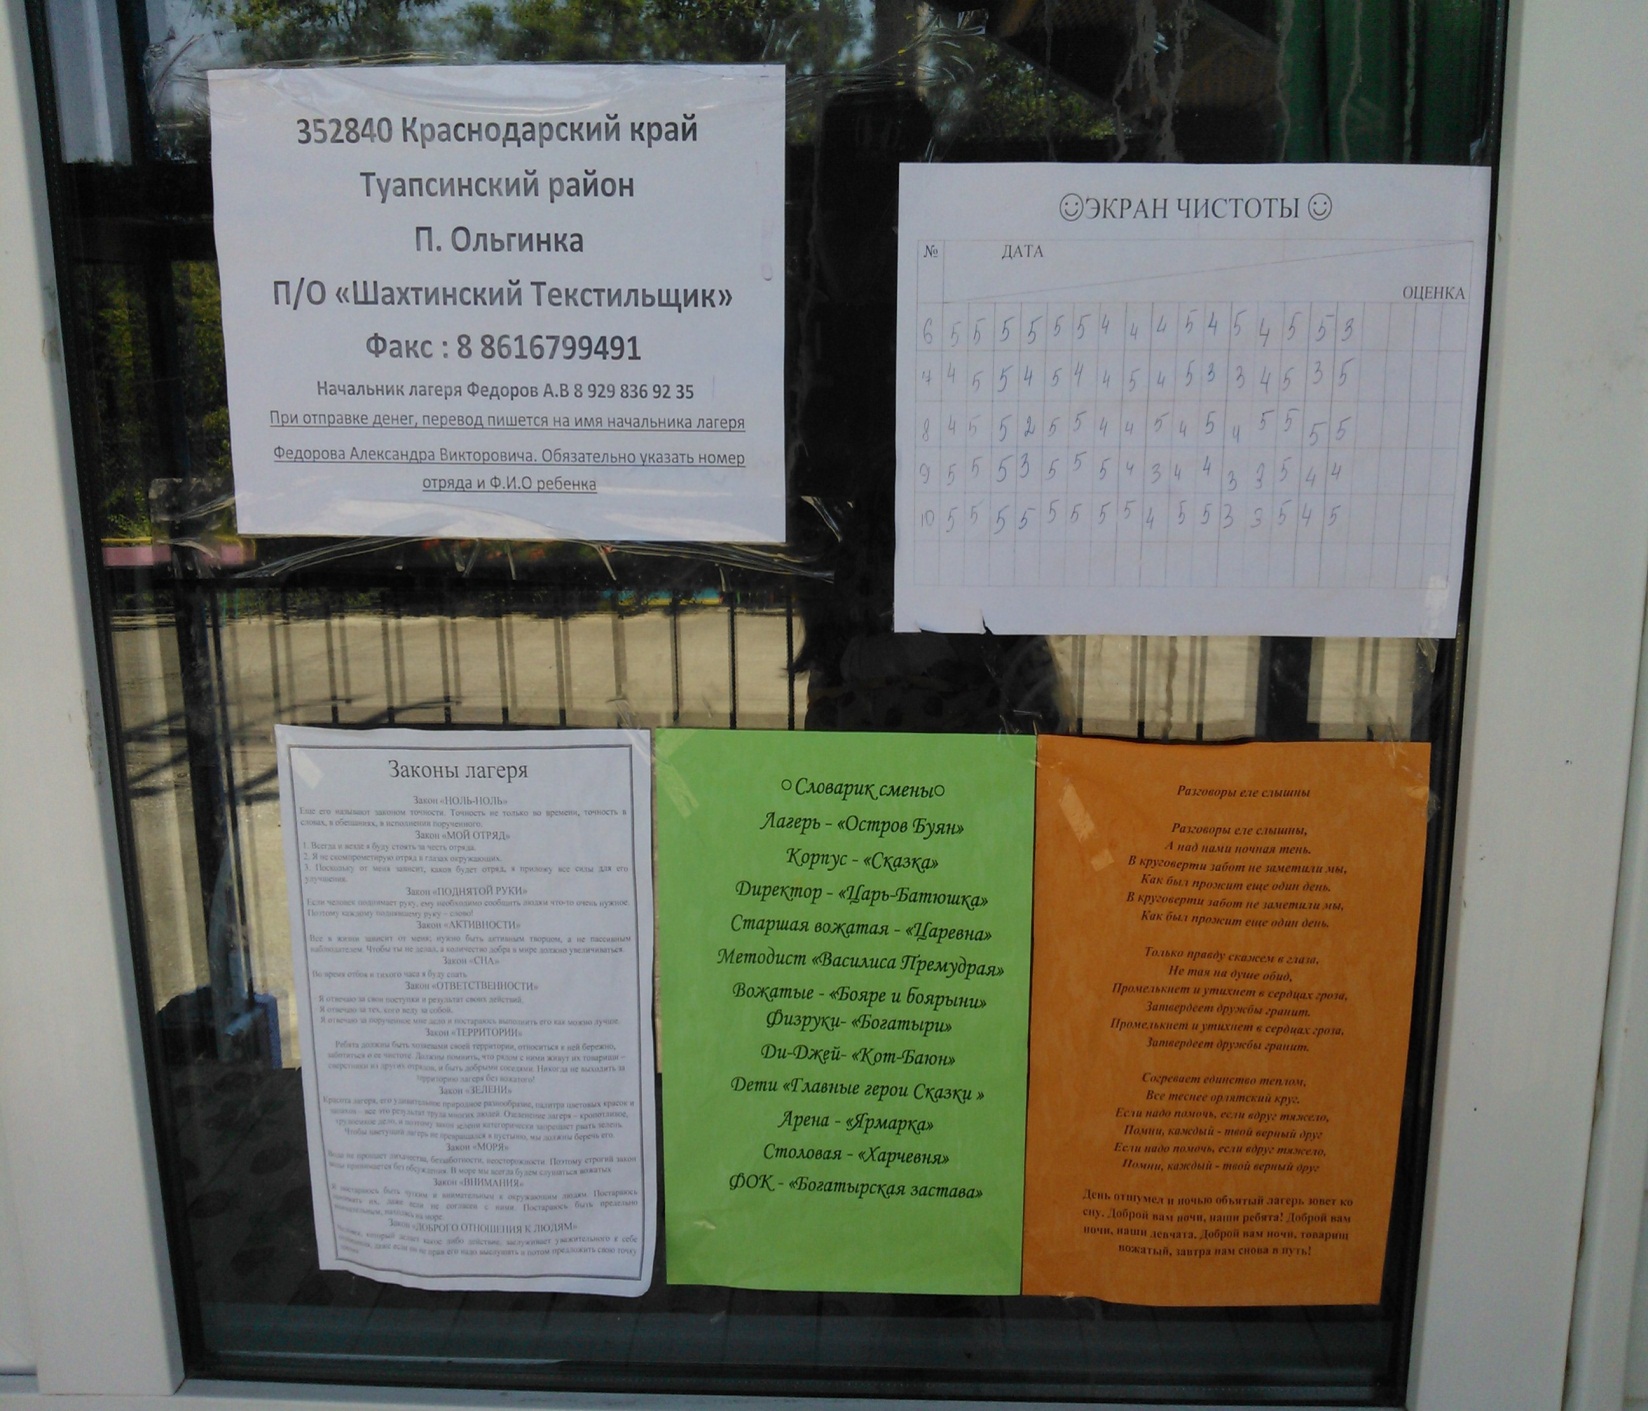 352840 Краснодарский край
Туапсинский район
П. Ольгинка
П/О «Шахтинский Текстильщик»
Факс : 8 8616799491
Начальник лагеря Федоров А.В 8 929 836 92 35
При отправке денег, перевод пишется на имя начальника лагеря
Федорова Александра Викторовича. Обязательно указать номер
отряда и Ф.И.О ребенка
☺ЭКРАН ЧИСТОТЫ ☺
№ ДАТА
ОЦЕНКА
6 5 5 5 5 5 5 4 4 4 5 4 5 4 5 5 3
7 4 5 5 4 5 4 4 5 4 5 3 3 4 5 3 5
8 4 5 5 2 5 5 4 4 5 4 5 4 5 5 5 5
9 5 5 5 3 5 5 5 4 3 4 4 3 3 5 4 4
10 5 5 5 5 5 5 5 5 4 5 5 3 3 5 4 5
Законы лагеря
Закон «НОЛЬ-НОЛЬ»
Еще его называют законом точности. Точность не только во времени, точность в
словах, в обещаниях, в исполнении порученного.
Закон «МОЙ ОТРЯД»
1. Всегда и везде я буду стоять за честь отряда.
2. Я не скомпрометирую отряд в глазах окружающих.
3. Поскольку от меня зависит, каков будет отряд, я приложу все силы для его
улучшения.
Закон «ПОДНЯТОЙ РУКИ»
Если человек поднимает руку, ему необходимо сообщить людям что-то очень нужное.
Поэтому каждому поднявшему руку – слово!
Закон «АКТИВНОСТИ»
Все в жизни зависит от меня; нужно быть активным творцом, а не пассивным
наблюдателем. Чтобы ты не делал, а количество добра в мире должно увеличиваться.
Закон «СНА»
Во время отбоя и тихого часа я буду спать
Закон «ОТВЕТСТВЕННОСТИ»
Я отвечаю за свои поступки и результат своих действий.
Я отвечаю за тех, кого веду за собой.
Я отвечаю за порученное мне дело и постараюсь выполнить его как можно лучше.
Закон «ТЕРРИТОРИИ»
Ребята должны быть хозяевами своей территории, относиться к ней бережно,
заботиться о ее чистоте. Должны помнить, что рядом с ними живут их товарищи –
сверстники из других отрядов, и быть добрыми соседями. Никогда не выходить за
территорию лагеря без вожатого!
Закон «ЗЕЛЕНИ»
Красота лагеря, его удивительное природное разнообразие, палитра цветовых красок и
запахов – все это результат труда многих людей. Озеленение лагеря – кропотливое,
трудоемкое дело, и поэтому закон зелени категорически запрещает рвать зелень.
Чтобы цветущий лагерь не превращался в пустыню, мы должны беречь его.
Закон «МОРЯ»
Вода не прощает лихачества, беззаботности, неосторожности. Поэтому строгий закон
воды принимается без обсуждения. В море мы всегда будем слушаться вожатых
Закон «ВНИМАНИЯ»
Я постараюсь быть чутким и внимательным к окружающим людям. Постараюсь
понимать их, даже если не согласен с ними. Постараюсь быть предельно
внимательным, находясь на море.
Закон «ДОБРОГО ОТНОШЕНИЯ К ЛЮДЯМ»
Человек, который делает какое либо действие, заслуживает уважительного к себе
отношения, даже если он не прав его надо выслушать и потом предложить свою точку
зрения
○Словарик смены○
Лагерь – «Остров Буян»
Корпус – «Сказка»
Директор – «Царь-Батюшка»
Старшая вожатая – «Царевна»
Методист «Василиса Премудрая»
Вожатые – «Бояре и боярыни»
Физруки- «Богатыри»
Ди-Джей- «Кот-Баюн»
Дети «Главные герои Сказки »
Арена – «Ярмарка»
Столовая – «Харчевня»
ФОК – «Богатырская застава»
Разговоры еле слышны
Разговоры еле слышны,
А над нами ночная тень.
В круговерти забот не заметили мы,
Как был прожит еще один день.
В круговерти забот не заметили мы,
Как был прожит еще один день.
Только правду скажем в глаза,
Не тая на душе обид,
Промелькнет и утихнет в сердцах гроза,
Затвердеет дружбы гранит.
Промелькнет и утихнет в сердцах гроза,
Затвердеет дружбы гранит.
Согревает единство теплом,
Все теснее орлятский круг,
Если надо помочь, если вдруг тяжело,
Помни, каждый - твой верный друг
Если надо помочь, если вдруг тяжело,
Помни, каждый - твой верный друг
День отшумел и ночью объятый лагерь зовет ко
сну. Доброй вам ночи, наши ребята! Доброй вам
ночи, наши девчата. Доброй вам ночи, товарищ
вожатый, завтра нам снова в путь!